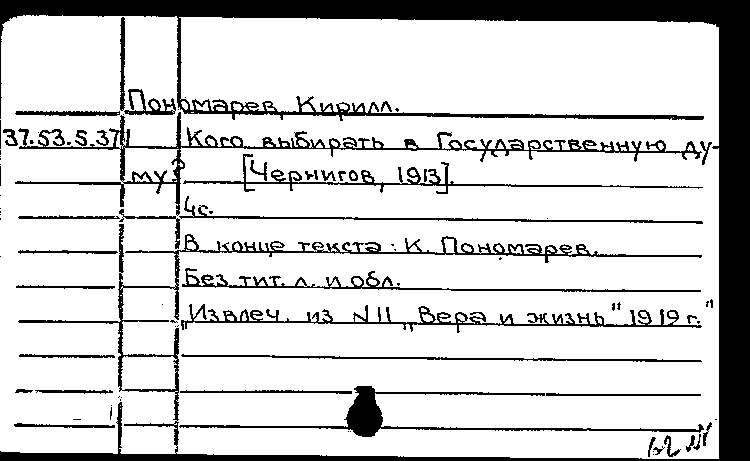 Пономарев, Кирилл.
37.53.5.371 Кого выбирать в Государственную ду-
му? [Чернигов, 1913].
4с.
В конце текста: К. Пономарев.
Без тит. л. и обл.
„Извлеч. из N11 „Вера и жизнь" 1919 г."